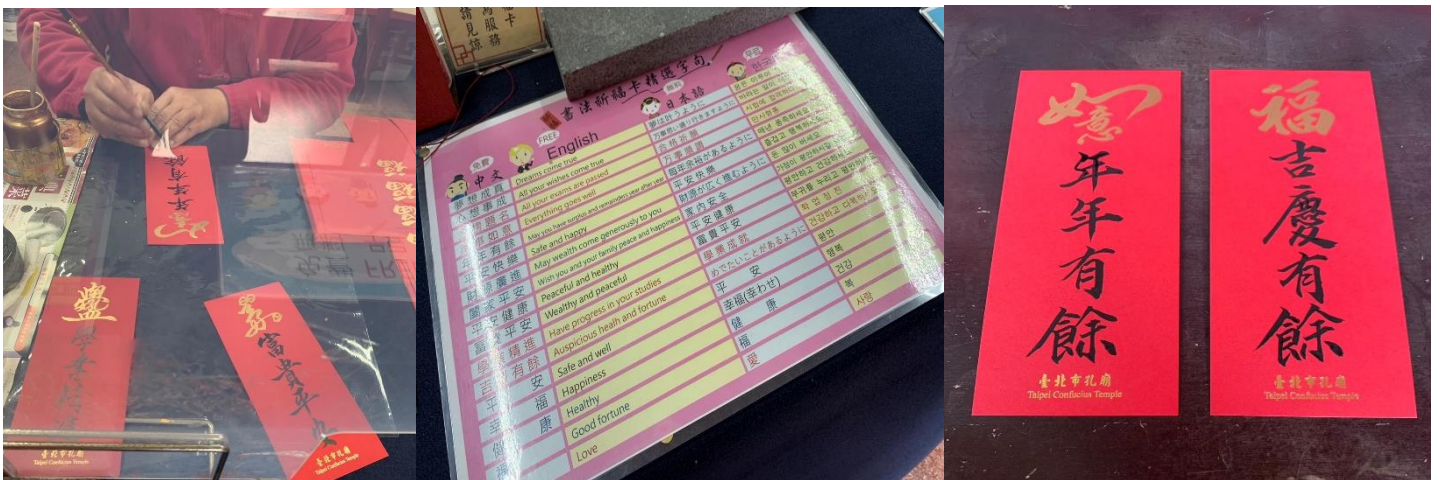 年年有餘
如意
學業精進
臺北市孔廟
Taipei Confucius Temple
富貴平安
臺北市孔廟
Taipei Confucius Temple
福卡
服務
請見諒
書法祈福卡精選字句
免費
中文
夢想成真
心想事成
題名
事如意
年年有餘
平安快樂
財源廣進
闔家平安
平安健康
富貴平安
學業精進
吉慶有餘
平安
幸福
健康
FREE
English
Dreams come true
All your wishes come true
All your exams are passed
Everything goes well
May you have surplus and remainders year after year
Safe and happy
May wealth come generously to you
Wish you and your family peace and happiness
Peaceful and healthy
Wealthy and peaceful
Have progress in your studies
Auspicious healh and fortune
Safe and well
Happiness
Healthy
Good fortune
Love
無料
日本語
夢は叶うように
万事思い通り行きますように
合格祈願
万事順調
毎年余裕があるように
平安快樂
財源が広く進むように
家内安全
平安健康
富貴平安
學業成就
めでたいことがあるように
平安
幸福(幸わせ)
健康
福
愛
무료
학업 정진
평안
행복
건강
복
사랑
如意
年年有餘
臺北市孔廟
Taipei Confucius Temple
福
吉慶有餘
臺北市孔廟
Taipei Confucius Temple